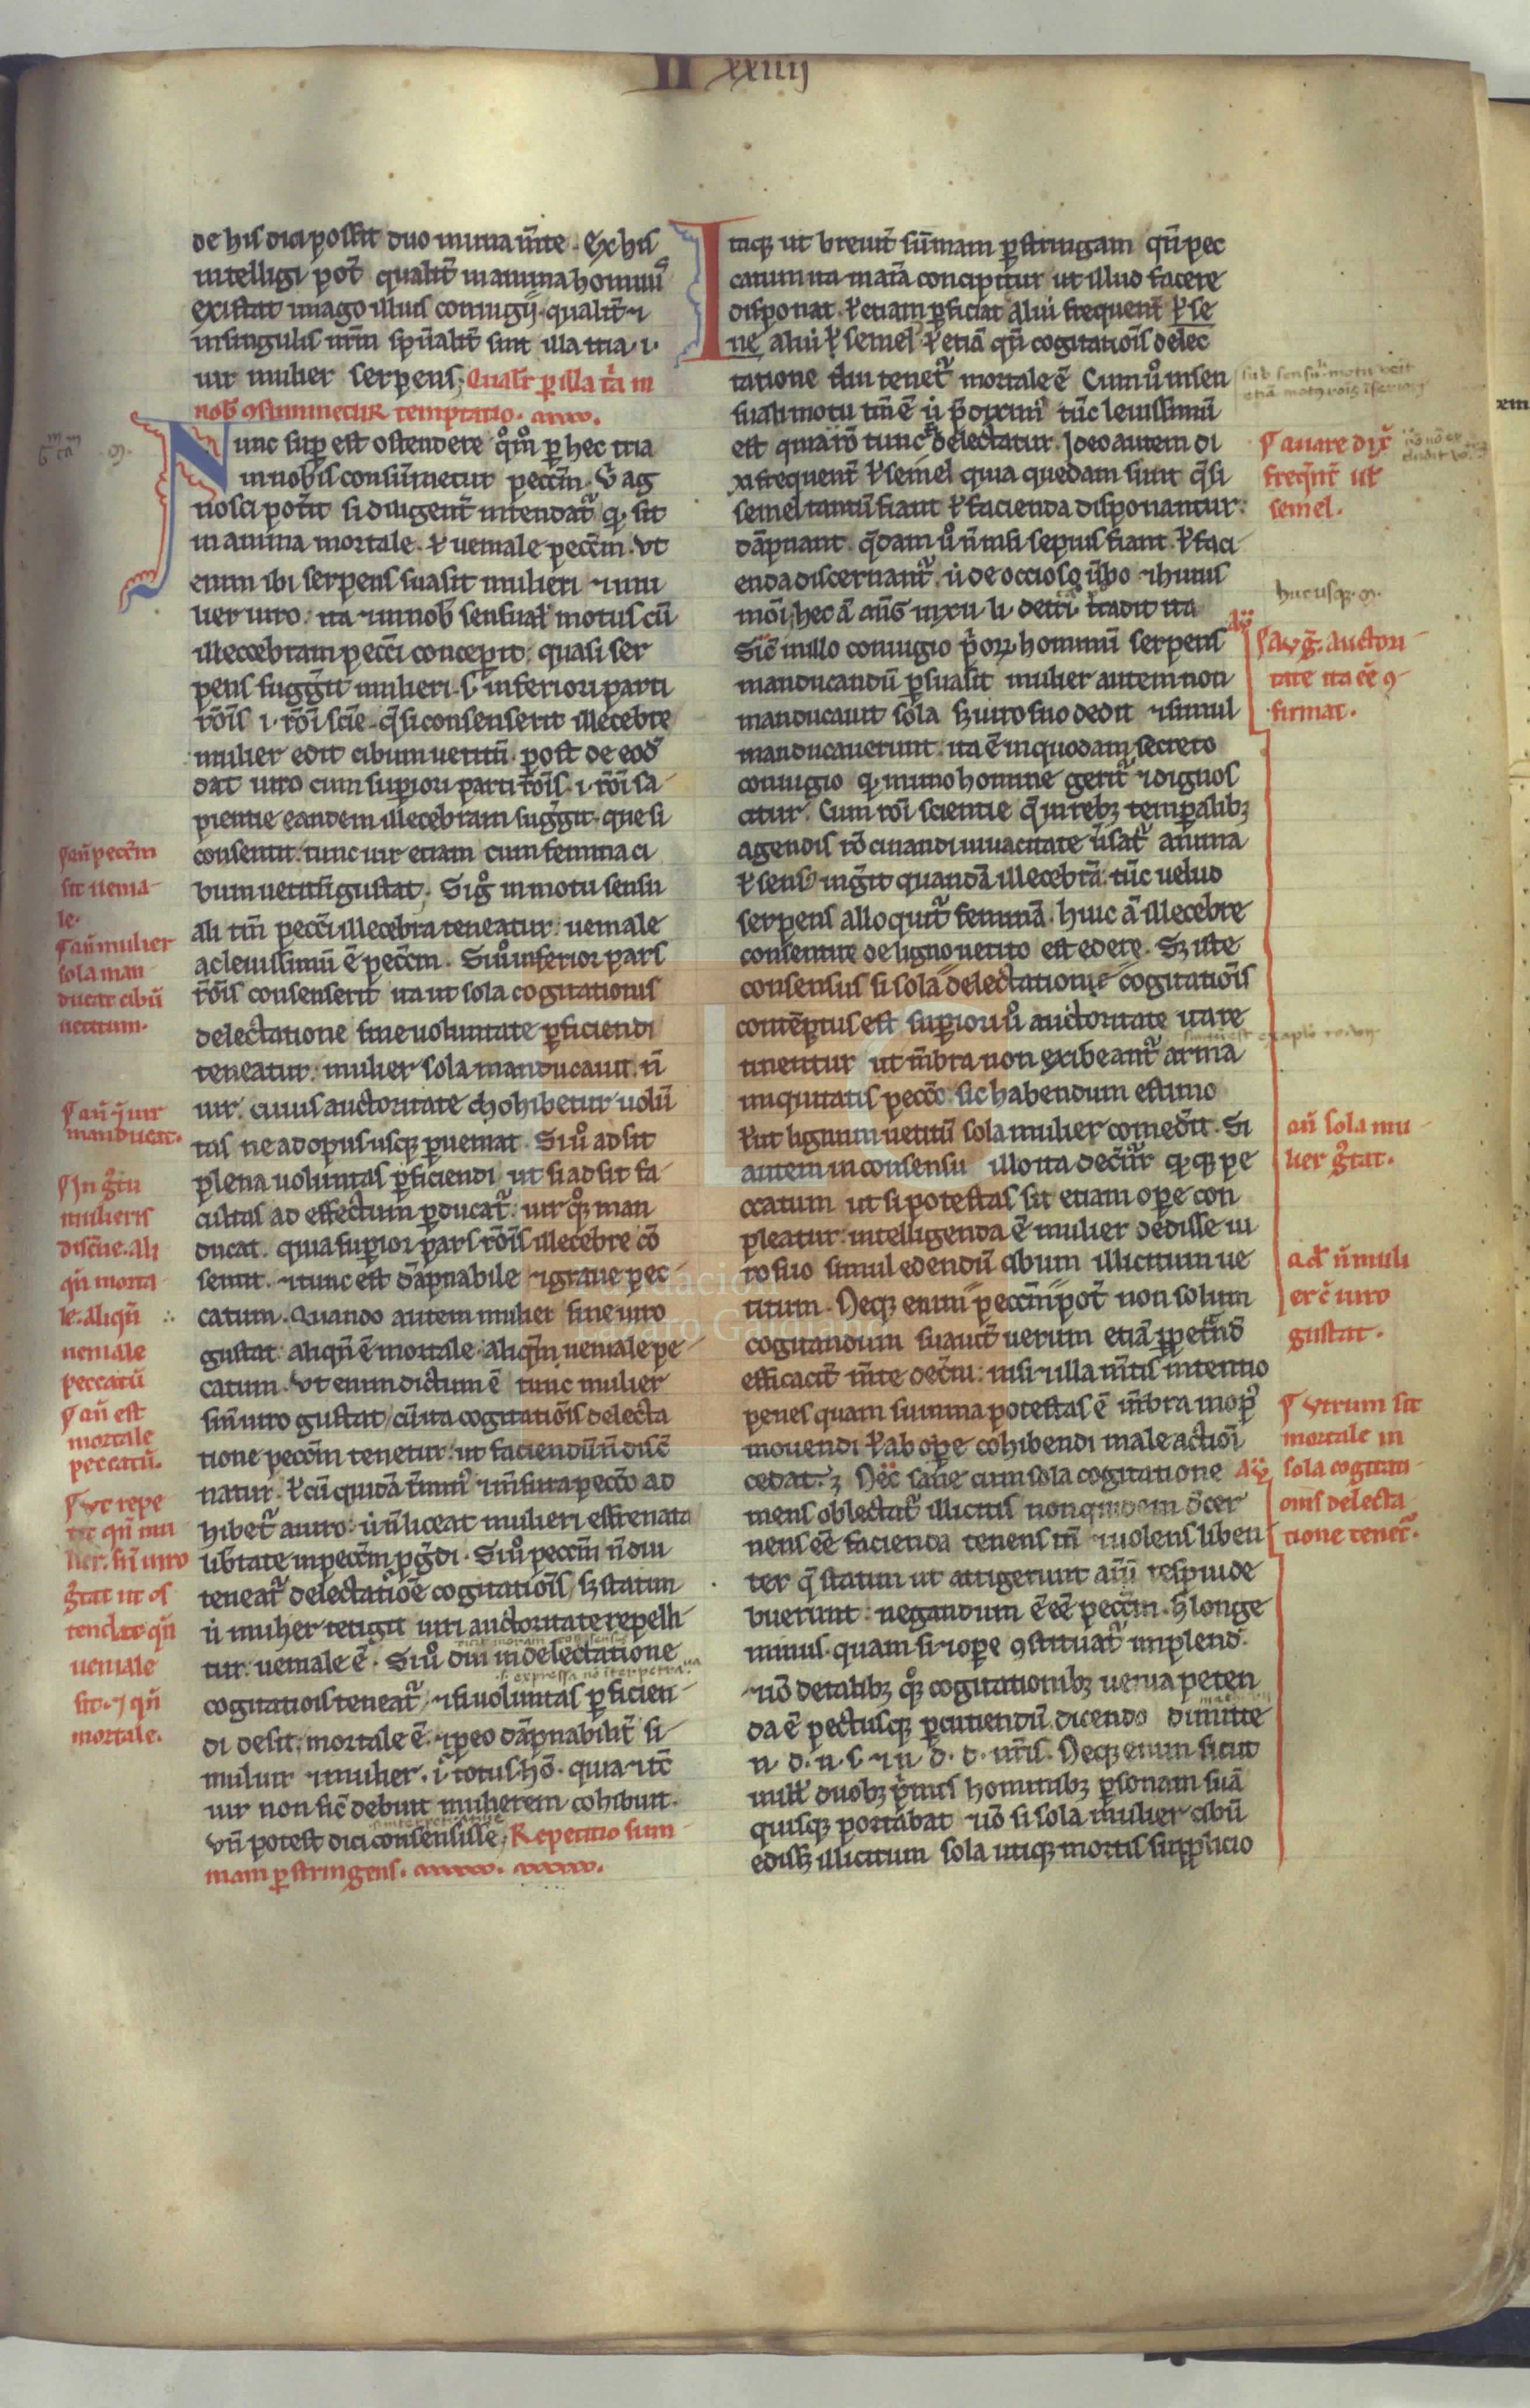 II xxiiij
de his dici possit duo in una mente. Ex his
intelligi pot̄ qualit̄ in anima hominis
existat imago illius coniugij. qualit̄ ⁊
in singulis nr̄m sp̄ualit̄ sint illa tria. i.
uir mulier serpens; Qualit̄ p illa t̄a in
nob̄ ꝯsummetur temptatio.
Nunc sup est ostendere qͦmͦ p hec tria
in nobis consūmetur pecc̄m. Vn̄ ag
nosci pot̄it si diligent̄ intendat̄ qͥ sit
in anima mortale. ⁊ ueniale pecc̄m. Vt
enim ibi serpens suasit mulieri ⁊ mu
lier uiro: ita ⁊ in nob̄ sensual̄ motus cū
illecebram pecc̄i conceperit: quasi ser
pens sugḡit mulieri. s. inferiori parti
rōis i. rōi scīe. q̄ si consenserit illecebre
mulier edit cibum uetitū. post de eod̄
dat uiro cum supiori parti rōis. i. rōi sa
pientie eandem illecebram sugḡit. que si
consentit: tunc uir etiam cum femina ci
bum uetitū gustat. Sig̊ in motu sensu
ali tm̄ pecc̄i illecebra teneatur: ueniale
ac leuissimū ē pecc̄m. Si uͦ inferior pars
rōis consenserit ita ut sola cogitationis
delectatione sine uoluntate pficiendi
teneatur: mulier sola manducauit. n̄
uir. cuius auctoritate cohibetur uolū
tas ne ad opus usq; pueniat. Si uͦ adsit
plena uoluntas pficiendi ut si adsit fa
cultas ad effectum pducat̄: uir qͦq; man
ducat. quia supior pars rōis illecebre cō
sentit. ⁊ tunc est dāpnabile ⁊ graue pec
catum. Quando autem mulier sine uiro
gustat: aliqn̄ ē mortale. aliqn̄ ueniale pe
catum. Vt enim dictum ē tunc mulier
sine uiro gustat cū ita cogitatiōis delecta
tione pecc̄m tenetur: ut faciendū n̄ disc̄
natur. ł cū quidā t̄min̄ ⁊ m̄sura pecc̄o ad
hibet̄ a uiro: ut n̄ liceat mulieri effrenata
lib̄tate in pecc̄m pḡdi. Si uͦ pecc̄m n̄ diu
teneat̄ delectatiōe cogitatiōis. sȝ statim
ut mulier tetigit uiri auctoritate repelli
tur: ueniale ē. Si uͦ diu in delectatione
cogitatiōis teneat̄. ⁊ si uoluntas pficien
di desit: mortale ē. ⁊ p eo dāpnabilit̄ si
mul uir ⁊ mulier. i. totus hō. quia ⁊ tc̄
uir non sic̄ debuit mulierem cohibuit.
Vn̄ potest dici consensisse; Repetitio sum
mam pstringens.
Itaq; ut breuit̄ sūmam pstringam qn̄ pec
catum ita in aīa concipitur ut illud facere
disponat. ł etiam pficiat alīui frequent̄ ł se
ne alīui ł semel ł etiā qn̄ cogitatiōis delec
tatione diu tenet̄ mortale ē. Cum uͦ in sen
suali motu tm̄ ē ut p̄diximꝰ tūc leuissimū
est quia rō tunc n̄ delectatur. Ideo autem di
xi frequent̄ ł semel quia quedam sunt q̄ si
semel tantū fiant ł facienda disponantur:
dāpnant. q̄dam uͦ n̄ nisi sepius fiant. ł faci
enda discernant̄. ut de occioso ūbo ⁊ huius
mōi; hec aū augͥ in xii li. de trī. tradit ita
Sic̄ in illo coniugio p̄orꝝ hominū serpens
manducandū psuasit mulier autem non
manducauit sola sȝ uiro suo dedit ⁊ simul
manducauerunt: ita ē in quodam secreto
coniugio qͥ in uno homine gerit̄ ⁊ dignos
citur. Cum rōi scientie q̄ in rebꝫ temporalibꝫ
agendis rōcinandi uiuacitate ūsat̄ anima
ł sensꝰ inḡit quandā illecebrā: tūc uelud
serpens alloquit̄ feminā. huic aū illecebre
consentire de ligno uetito est edere. Sȝ iste
consensus si sola delectatione cogitatiōis
contēptus est supiori uͦ auctoritate ita re
tinentur ut mēbra non exibeant̄ arma
iniquitatis pecc̄o: sic habendum estimo
ł ut lignum uetitū sola mulier comedit. Si
autem in consensu illo ita dec̄nit̄ qͥcq; pe
ccatum ut si potestas sit etiam ope con
pleatur: intelligenda ē mulier dedisse ui
ro suo simul edendū cibum illicitum ue
titum. Neq; enim pecc̄m pot̄ non solum
cogitandum suauit̄ uerum etiā ppet̄nd̄
efficacit̄ m̄te dec̄ni: nisi ⁊ illa m̄tis intentio
penes quam summa potestas ē mēbra in opꝰ
mouendi ł ab ope cohibendi male actiōi
cedat. Nec̄ sane cum sola cogitatione
mens oblectat̄ illicitis non quidem dc̄er
nens eē facienda tenens tn̄ ⁊ uolens liben
ter q̄ statim ut attigerunt aīū respui de
buerunt: negandum ē eē pecc̄m. sȝ longe
minus quam si ⁊ ope ꝯstituat̄ implend̄.
⁊ iō de talibꝫ qͦq; cogitationibꝫ uenia peten
da ē pectusq; pcutiendū dicendo dimitte
n. d. n. s. ⁊ n. d. d. nr̄is. Neq; enim sicut
in ill̄ duobꝫ p̄mis hominibꝫ psonam suā
quisq; portabat ⁊ iō si sola mulier cibū
edisset illicitum sola utiq; mortis supplicio
¶ aū pecc̄m
sit uenia
le.
¶ aū mulier
sola man
ducat cibū
uetitum.
¶ aū ⁊ uir
manducat.
¶ In g̊tu
mulieris
disc̄ne. ali
qn̄ morta
le. aliqn̄
ueniale
peccatū
¶ aū est
mortale
peccatū.
¶ Vt repe
tit qn̄ mu
lier. sin̄ uiro
g̊tat ut os
tendat qn̄
ueniale
sit. ⁊ qn̄
mortale.
¶ quare dix̄
freqn̄t̄ ut
semel.
huc usq; .m.
¶ Aug̊. auctori
tate ita ēē ꝯ
firmat.
aū sola mu
lier g̊tat.
ad n̄ muli
er c̄ uiro
gustat.
¶ Vtrum sit
mortale in
sola cogitati
onis delecta
tione tenet̄.
xiii